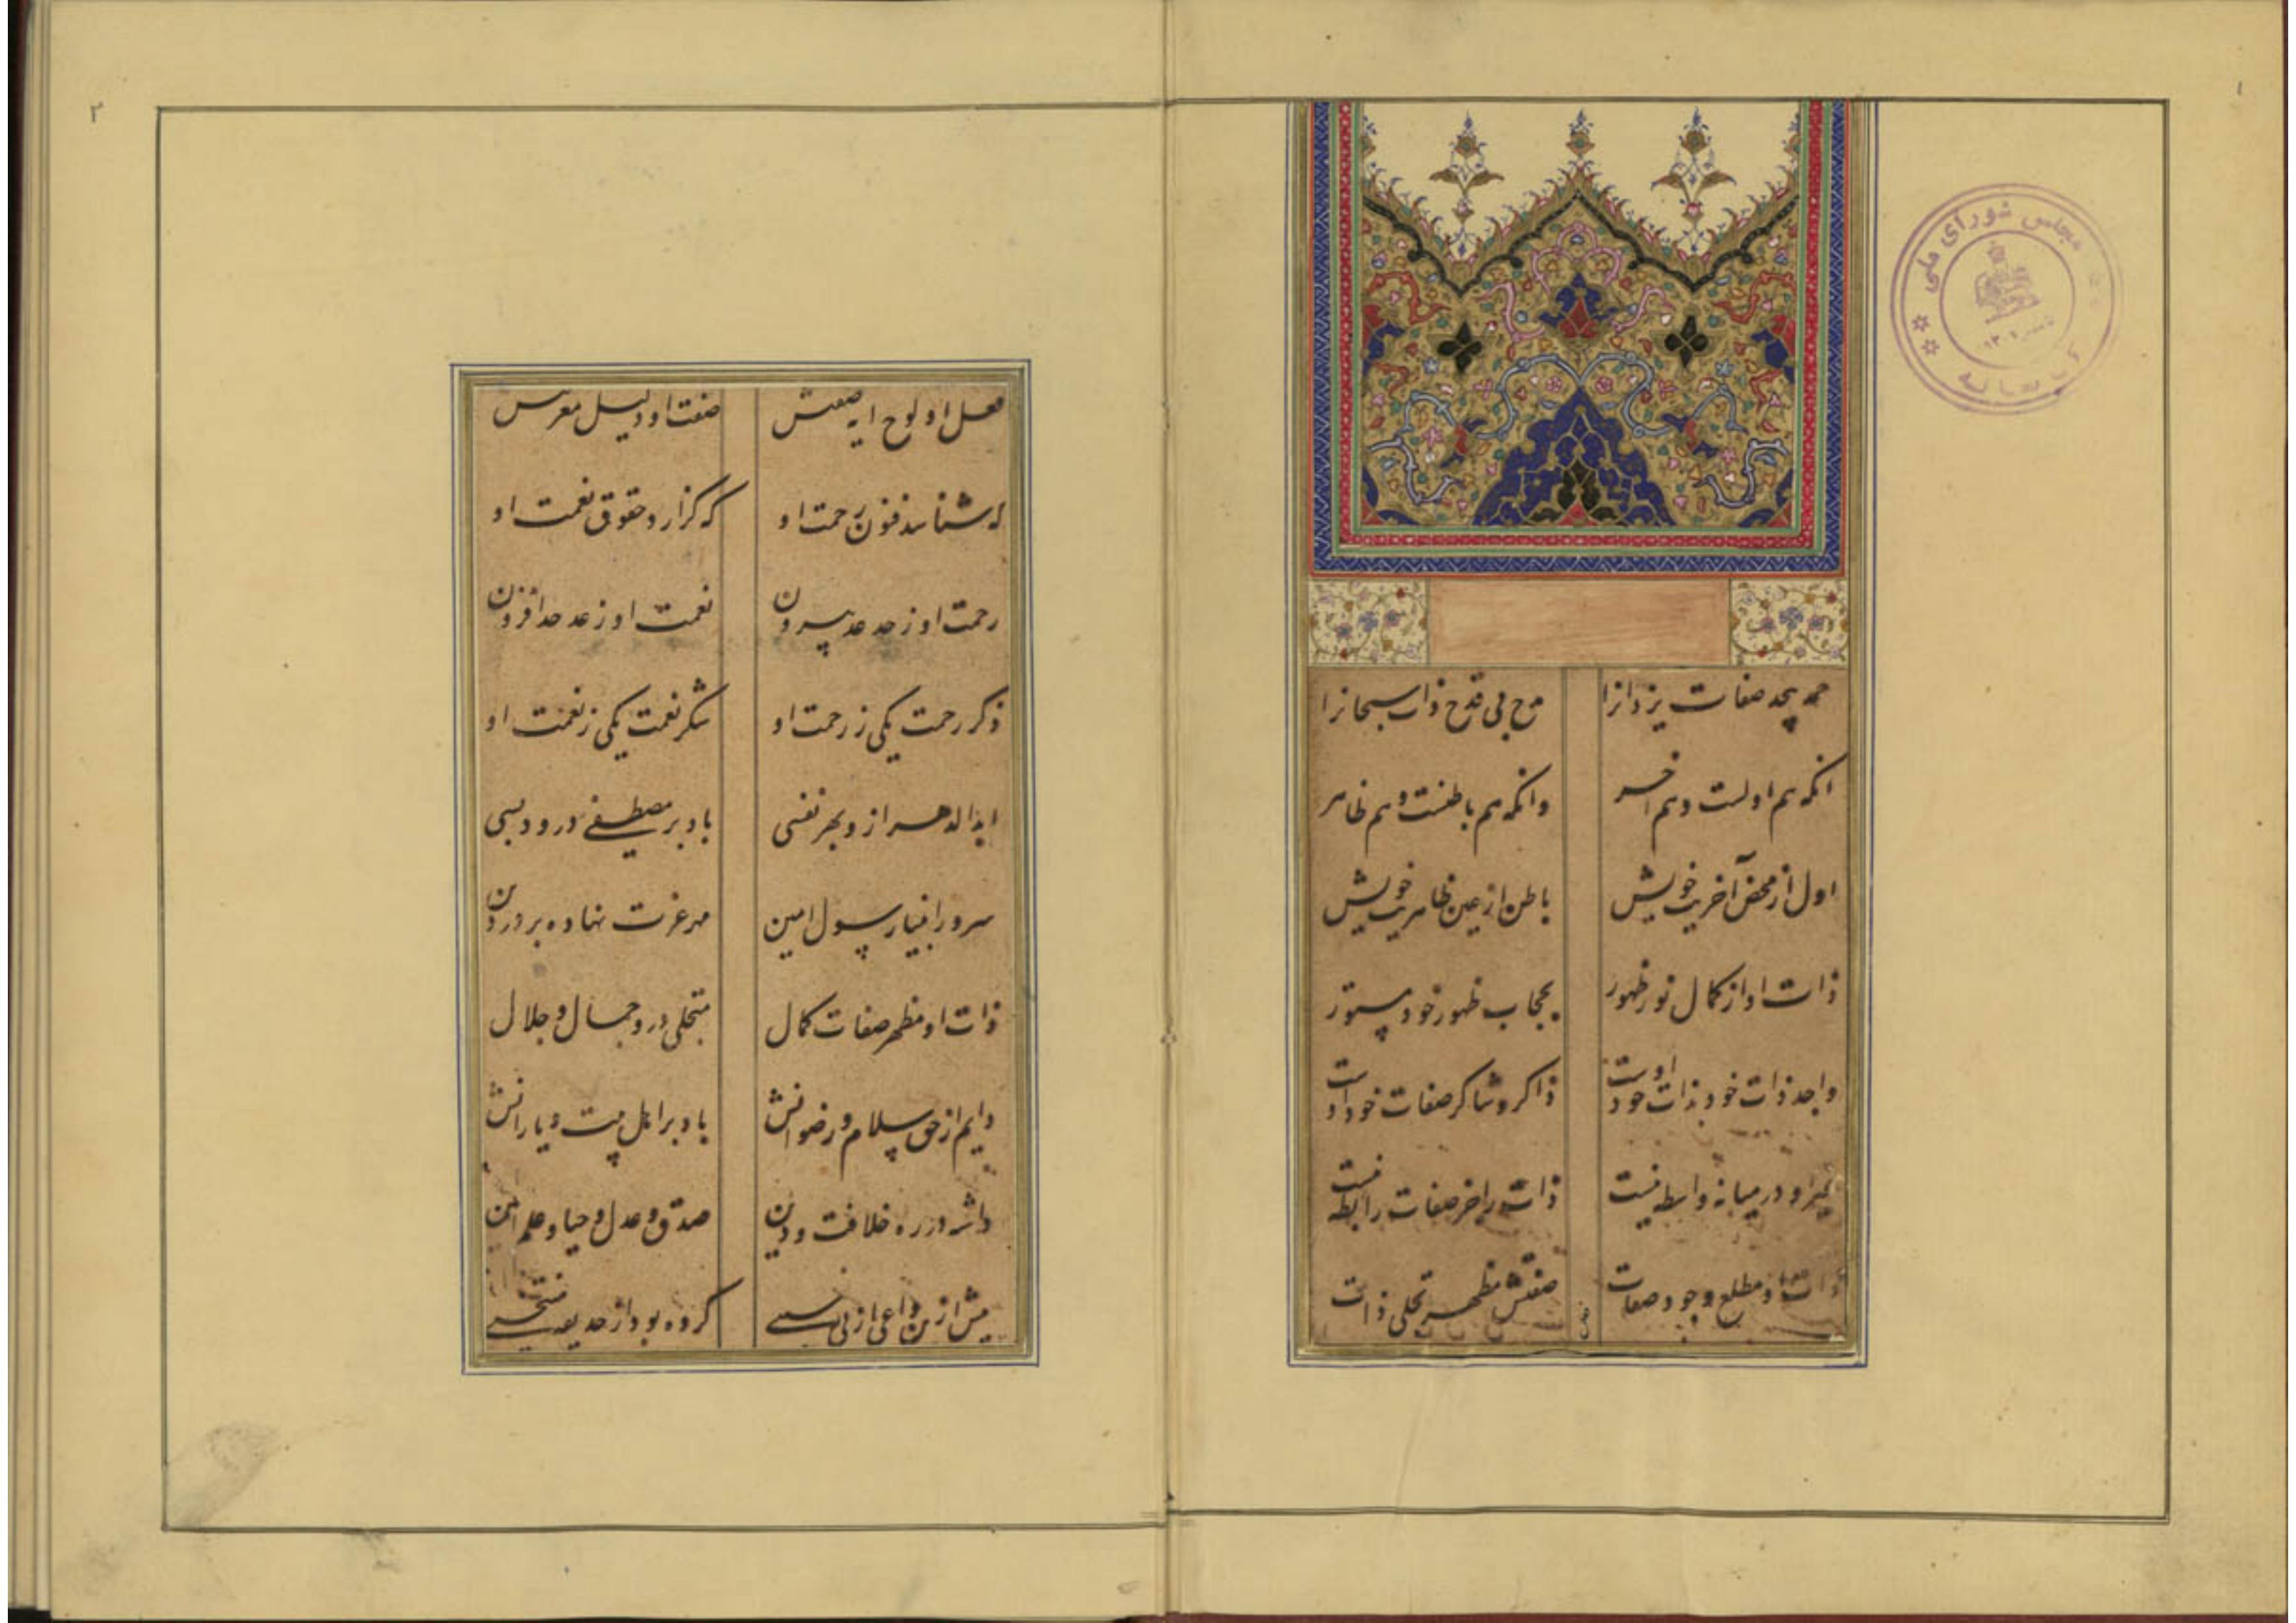 ۱
مجلس شورای ملی
کتابخانه
حمد بیحد صفات یزدانرا
مدح بی قدح ذات سبحانرا
انکه هم اولست و هم اخر
وانکه هم باطنست و هم ظاهر
اول از محض آخریت خویش
باطن از عین ظاهریت خویش
ذات او از کمال نور ظهور
بحجاب ظهور خود مستور
واجد ذات خود بذات خود اوست
ذاکر و شاکر صفات خود اوست
در میانه واسطه نیست
ذات را جز صفات رابطه نیست
ذات او مطلع وجود صفات
صفتش مظهر تجلی ذات
۲
فعل او لوح ایه صفتش
صفت او دلیل معرفتش
که شناسد فنون رحمت او
که گزارد حقوق نعمت او
رحمت او ز حد عد بیرون
نعمت او ز عد حد افزون
ذکر رحمت یکی ز رحمت او
شکر نعمت یکی ز نعمت او
ابد الدهر از و بهر نفسی
باد بر مصطفی درود بسی
سرور انبیا رسول امین
مهر عزت نهاده بر در دین
ذات او مظهر صفات کمال
متجلی درو جمال و جلال
دایم از حق سلام و رضوانش
باد بر اهل بیت و یارانش
داشته در ره خلافت و دین
صدق و عدل و حیا و علم
پیش از من
کرده بود از حدیقه